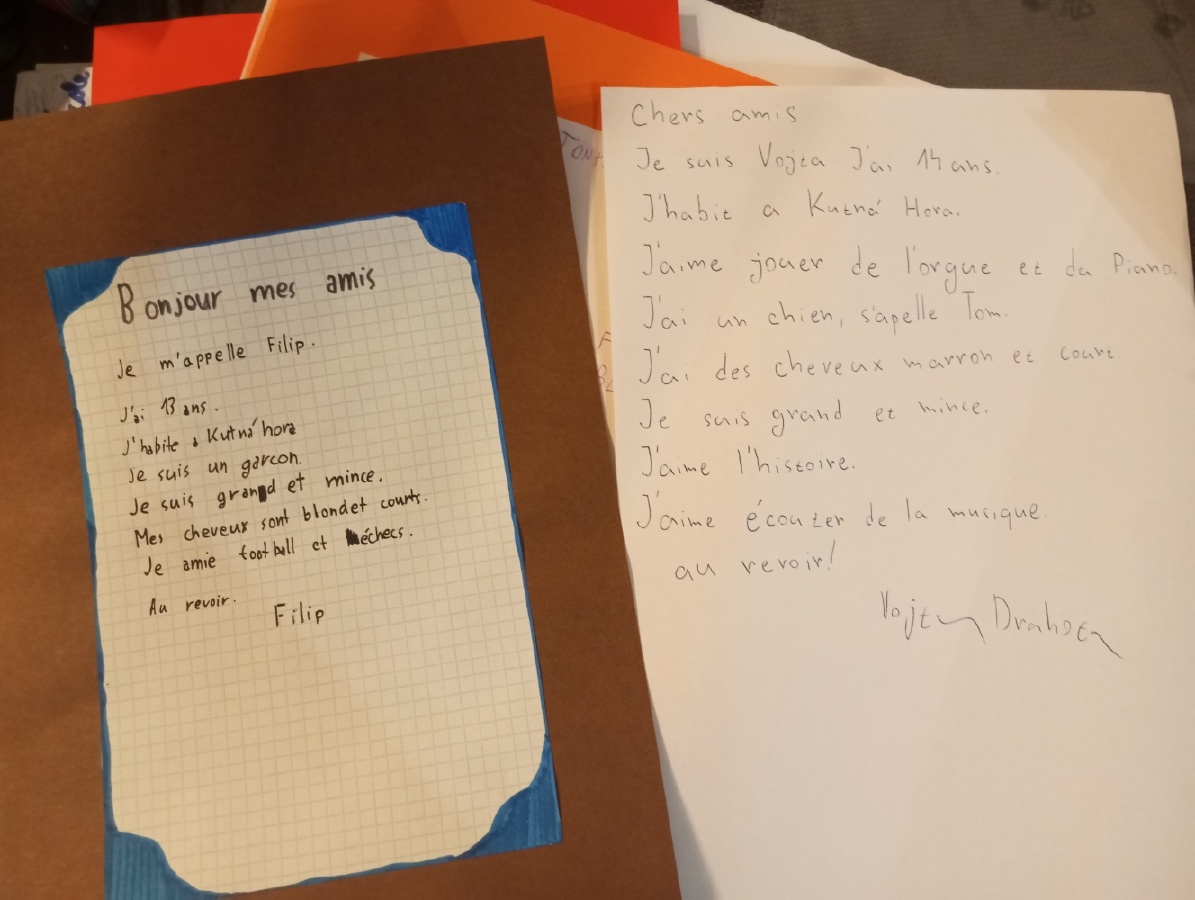 Bonjour mes amis
Je m'appelle Filip.
J'ai 13 ans.
J'habite à Kutná hora
Je suis un garcon.
Je suis grand et mince.
Mes cheveux sont blondet courts.
Je amie football et échecs.
Au revoir.
Filip
Chers amis
Je suis Vojta J'ai 14 ans.
J'habit a Kutná Hora.
J'aime jouer de l'orgue et du Piano.
J'ai un chien, s'apelle Tom.
J'ai des cheveux marron et court.
Je suis grand et mince.
J'aime l'histoire.
J'aime écouter de la musique.
au revoir!
Vojta Drahota